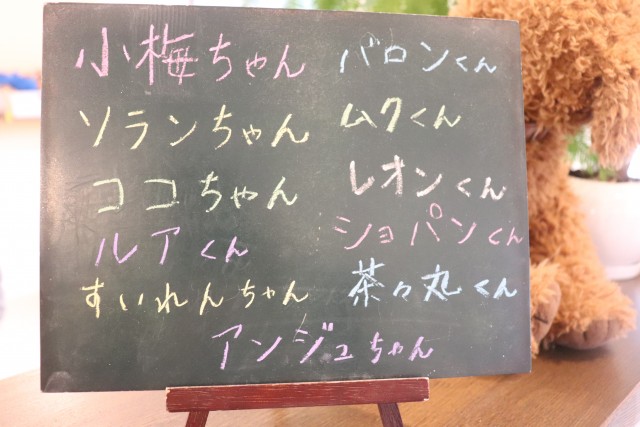 小梅ちゃん バロンくん
ソランちゃん ムクくん
ココちゃん レオンくん
ルアくん ショパンくん
すいれんちゃん 茶々丸くん
アンジュちゃん